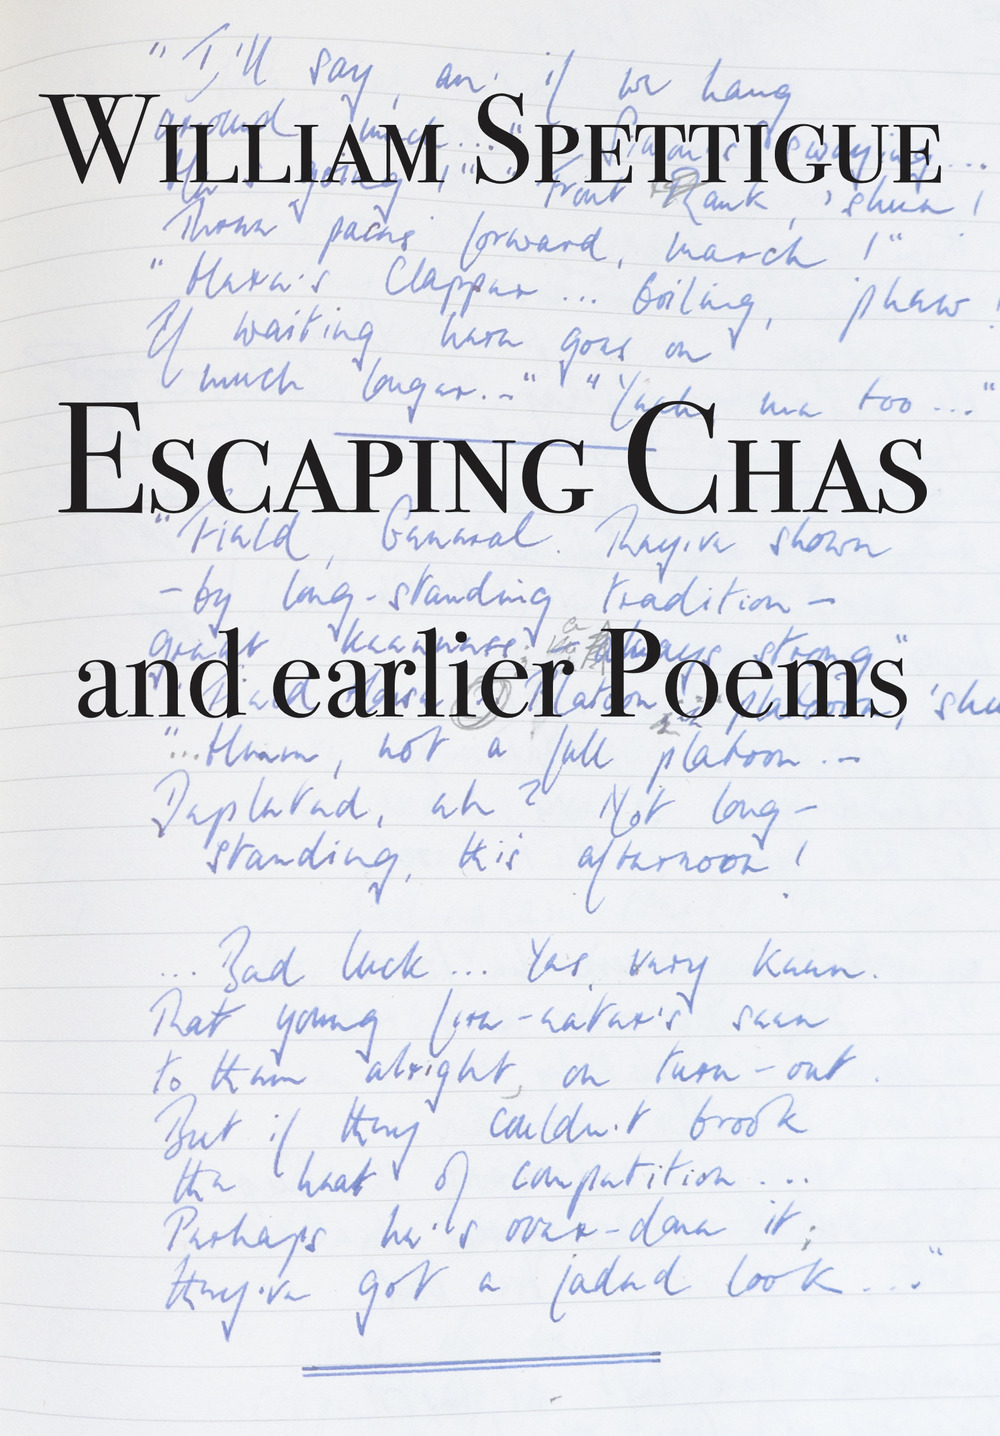 "I'll say, an' if we hang
WILLIAM SPETTIGUE
around much..." "Simon's swaying...
He's going!" "Front Rank, 'shun!
Three paces forward, march!"
"Here's Clapper... boiling, phew!
If waiting here goes on
much longer..." "Yeah me too..."
ESCAPING CHAS
"Field, General. They've shown
– by long-standing tradition –
great keenness: always strong"
and earlier Poems
platoon, 'shu
"...Hmm, not a full platoon...
Depleted, eh? Not long-
standing, this afternoon!
...Bad luck... Yes, very keen.
That young fire-eater's seen
to them alright, on turn-out.
But if they couldn't brook
the heat of competition...
Perhaps he's over-done it;
they've got a jaded look..."